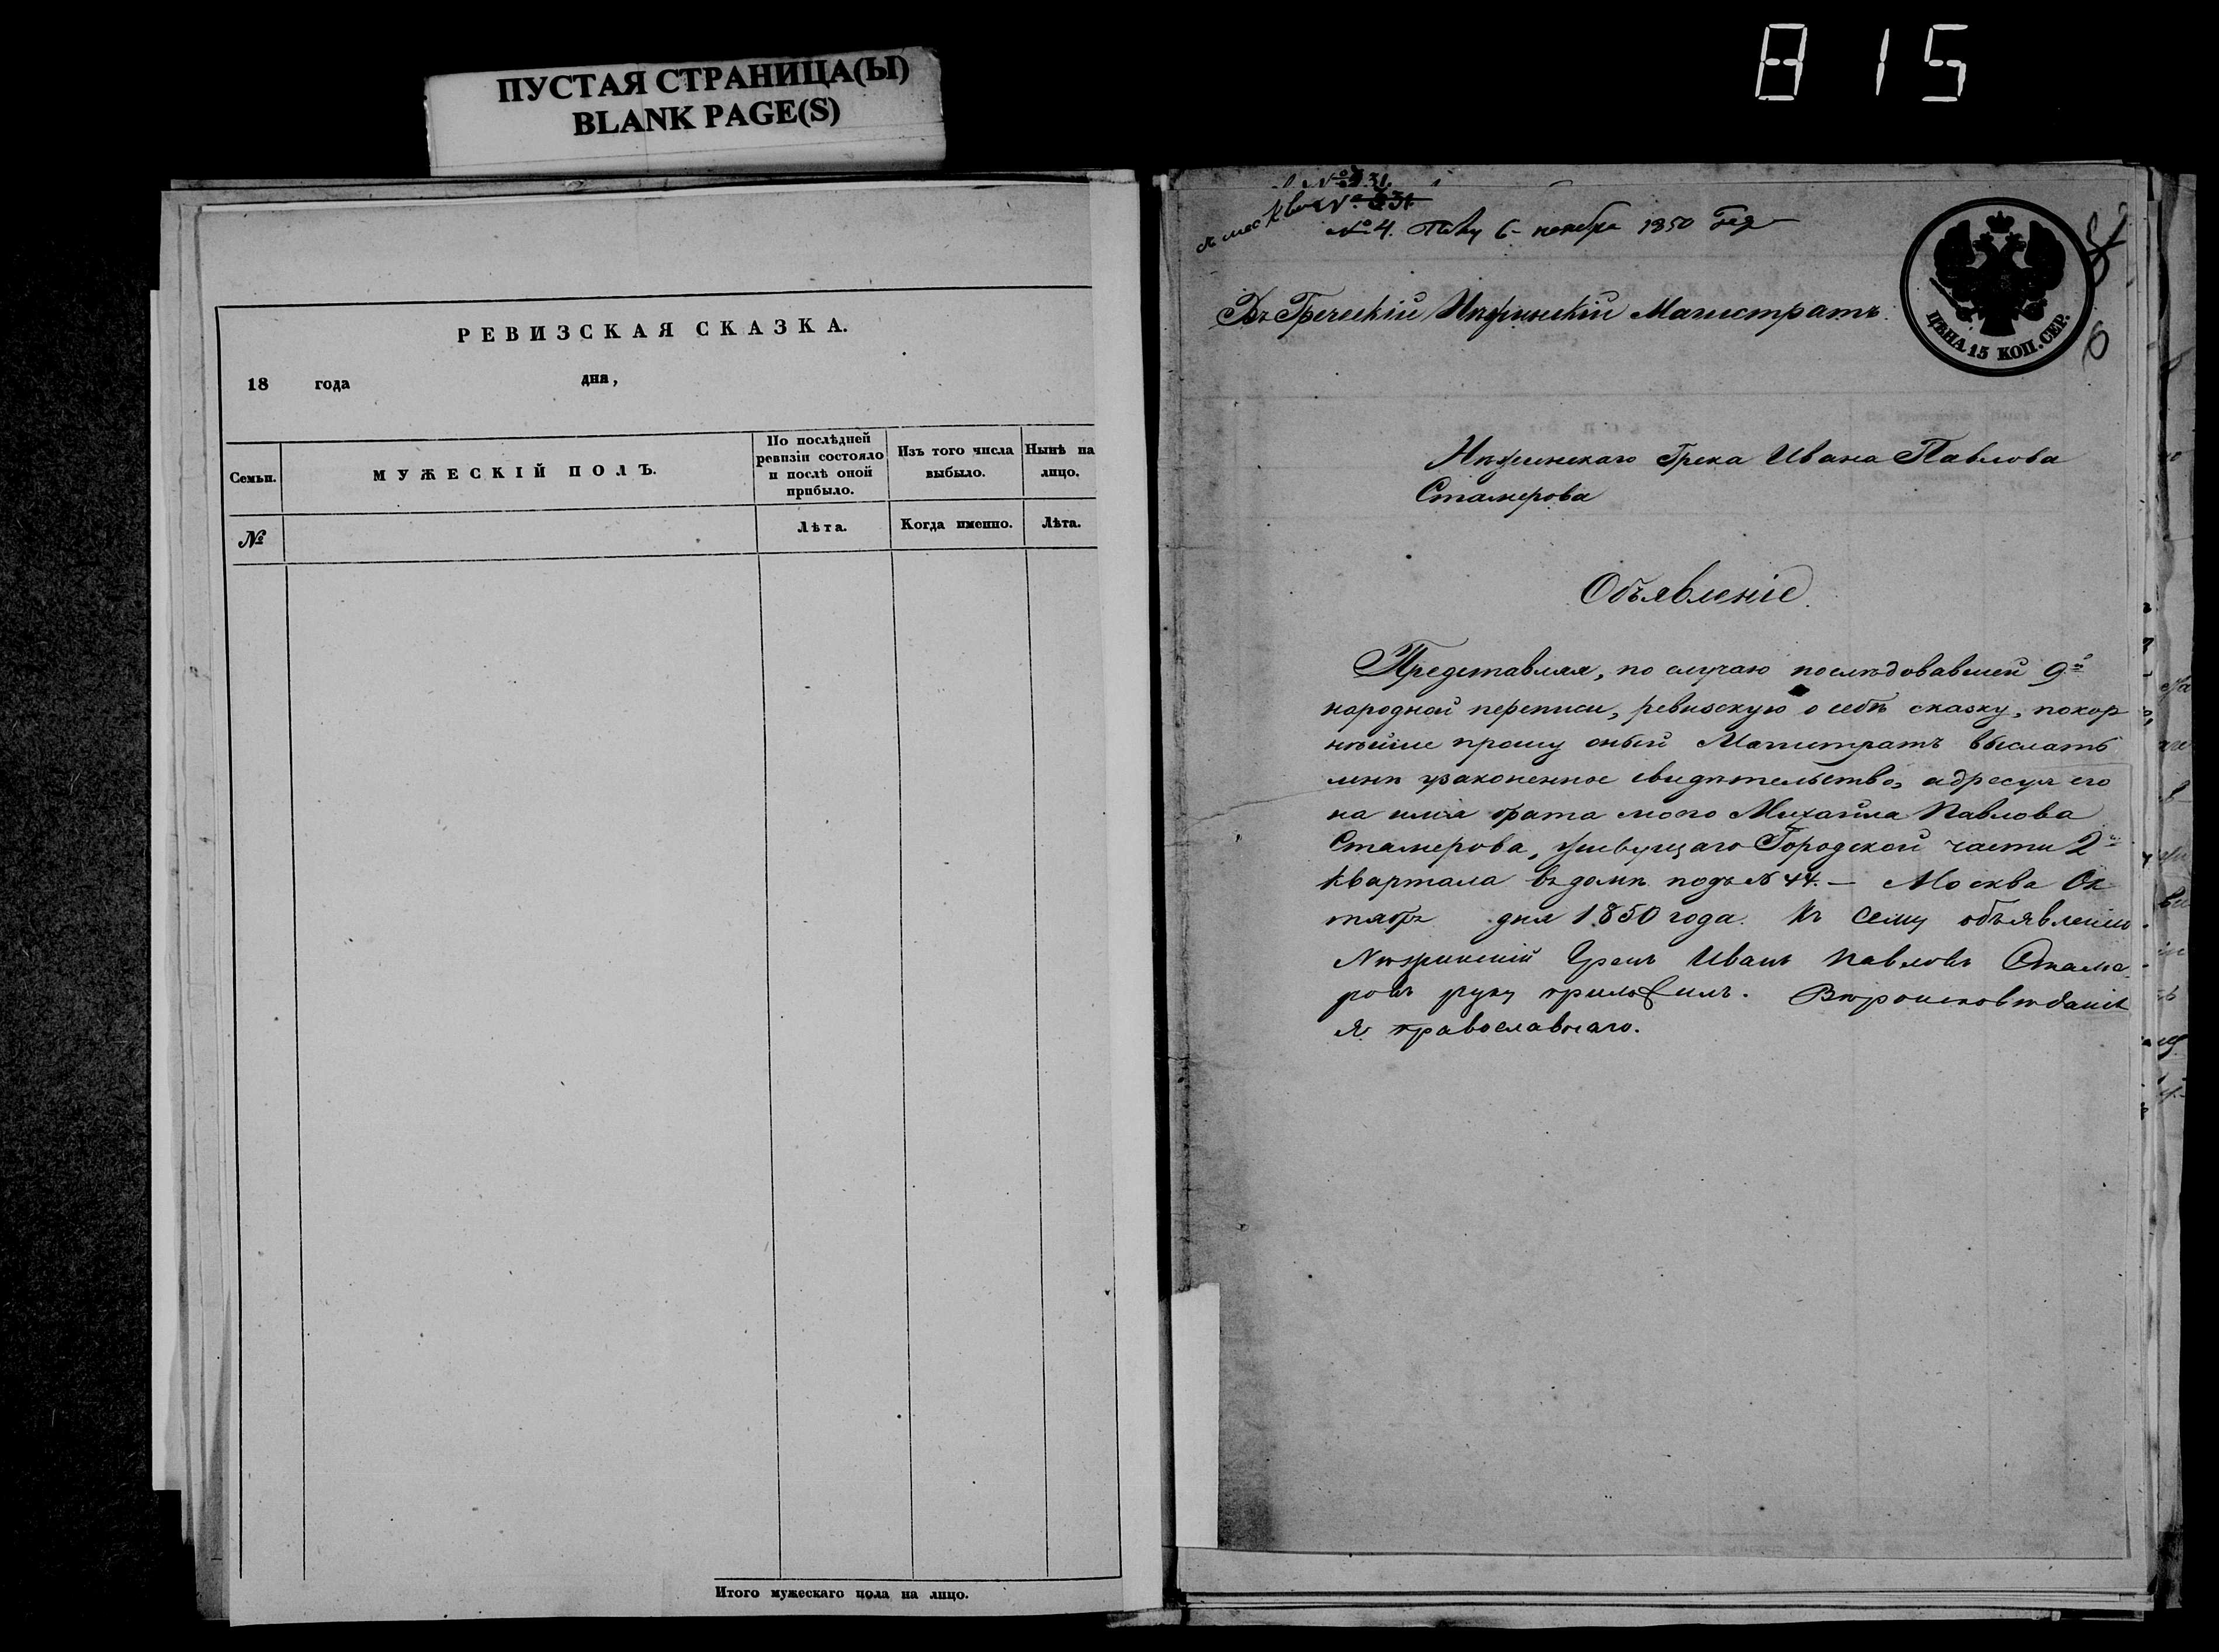 ПУСТАЯ СТРАНИЦА(Ы)
BLANK PAGE(S)
815
РЕВИЗСКАЯ СКАЗКА.
18 года дня,
Семьи.
МУЖЕСКІЙ ПОЛЪ.
По послѣдней ревизіи состояло и послѣ оной прибыло.
Изъ того числа выбыло.
Нынѣ на лицо.
№
Лѣта.
Когда именно.
Лѣта.
Итого мужескаго пола на лицо.
№ 31.
№ 4. 6 ноября 1850 года
ЦѢНА 15 КОП. СЕР.
Въ Греческій Нѣжинскій Магистратъ.
Нѣжинскаго Грека Ивана Павлова
Стамерова
Объявленіе.
Представляя, по случаю послѣдовавшей 9й
народной переписи, ревизскую о себѣ сказку, покор
нѣйше прошу оный Магистратъ выслать
мнѣ узаконенное свидѣтельство, адресуя его
на имя брата моего Михайла Павлова
Стамерова, живущаго Городской части 2
квартала въ домѣ подъ № 44. — Москва Ок
тября дня 1850 года. Къ сему объявленію
Нѣжинскій Грекъ Иванъ Павловъ Стаме
ровъ руку приложилъ. Вѣроисповѣданія
я православнаго.